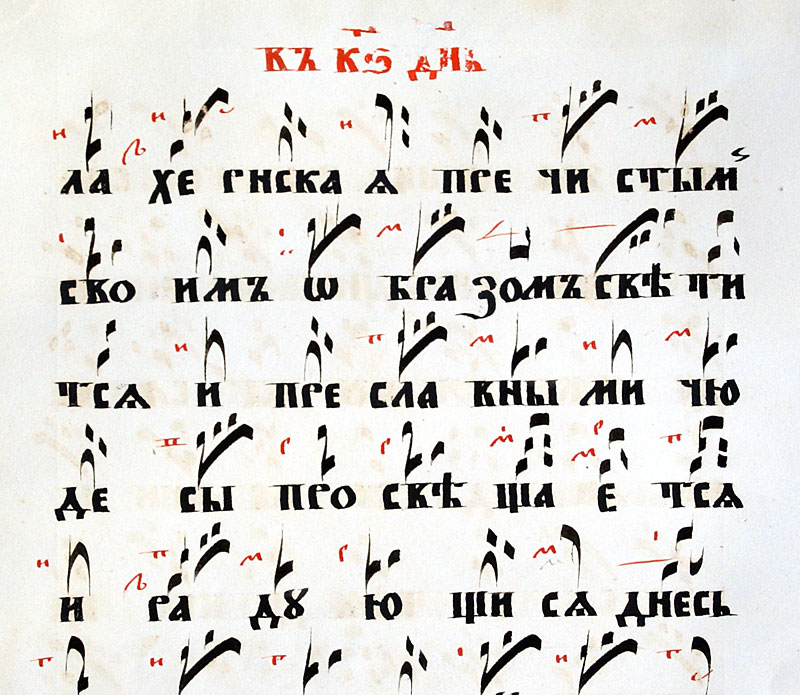 въ кѕ днь
ла хе рнска ѧ пре чи стым
сво имъ ѡ бра зомъ свѣ ти
тсѧ и пре сла вны ми чю
де сы про свѣ ща е тсѧ
и ра дꙋ ю щи сѧ днесь